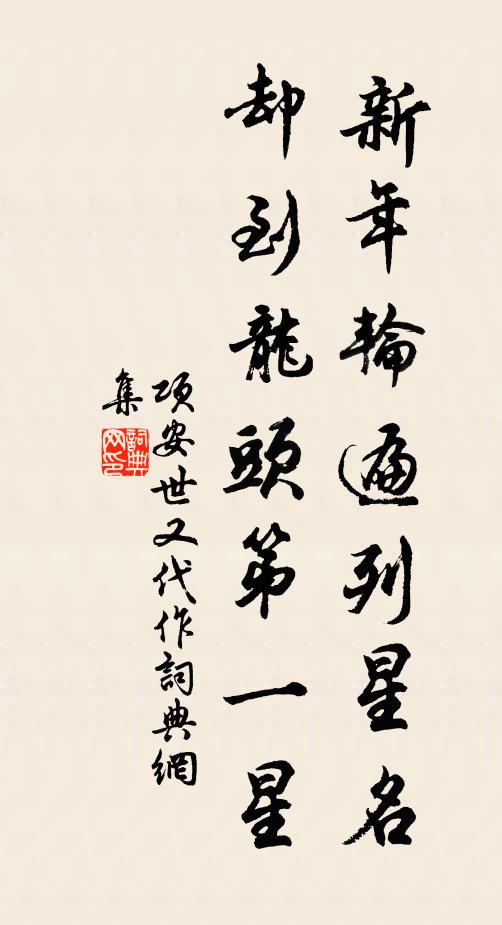 新年輪遍列星名
却到龍頭第一星
項安世又代作詞典網
集
詞典
网印